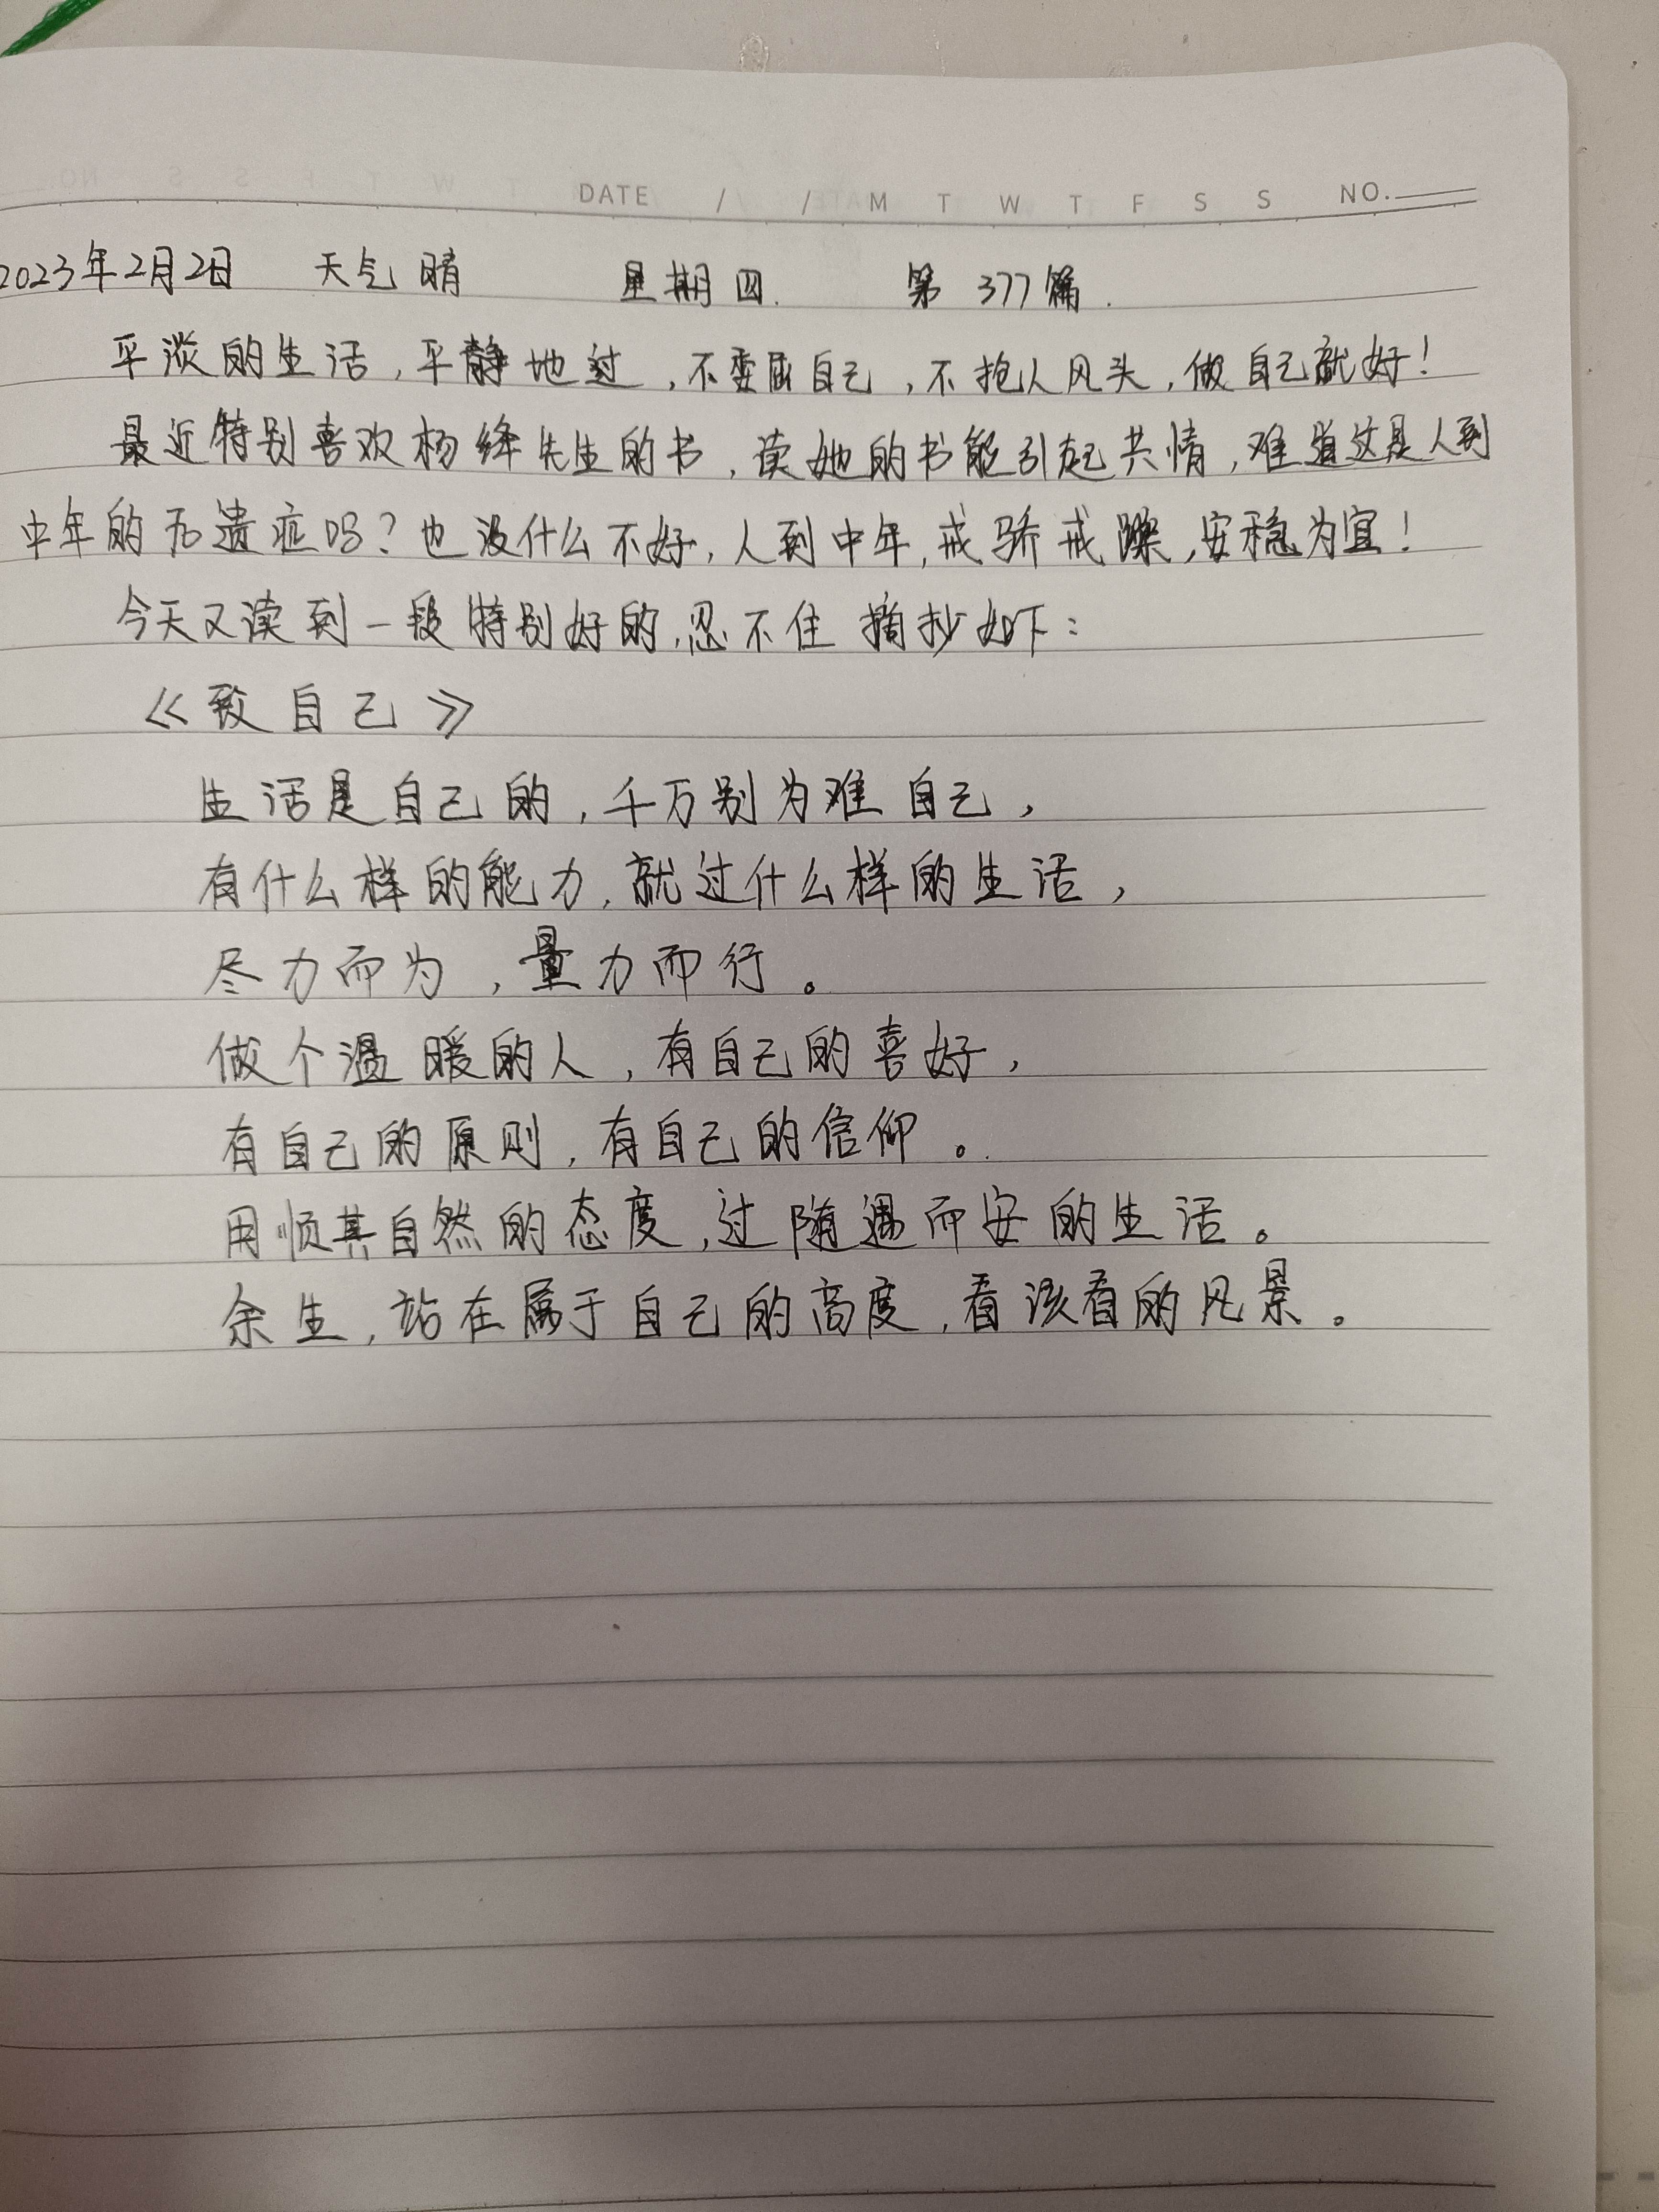 DATE / / M T W T F S S NO.
2023年2月2日 天气 晴 星期四. 第 377篇.
平淡的生活,平静地过,不委屈自己,不抢人风头,做自己就好!
最近特别喜欢杨绛先生的书,读她的书能引起共情,难道这是人到
中年的后遗症吗?也没什么不好,人到中年,戒骄戒躁,安稳为宜!
今天又读到一段特别好的,忍不住摘抄如下:
《致自己》
生活是自己的,千万别为难自己,
有什么样的能力,就过什么样的生活,
尽力而为,量力而行。
做个温暖的人,有自己的喜好,
有自己的原则,有自己的信仰。
用顺其自然的态度,过随遇而安的生活。
余生,站在属于自己的高度,看该看的风景。